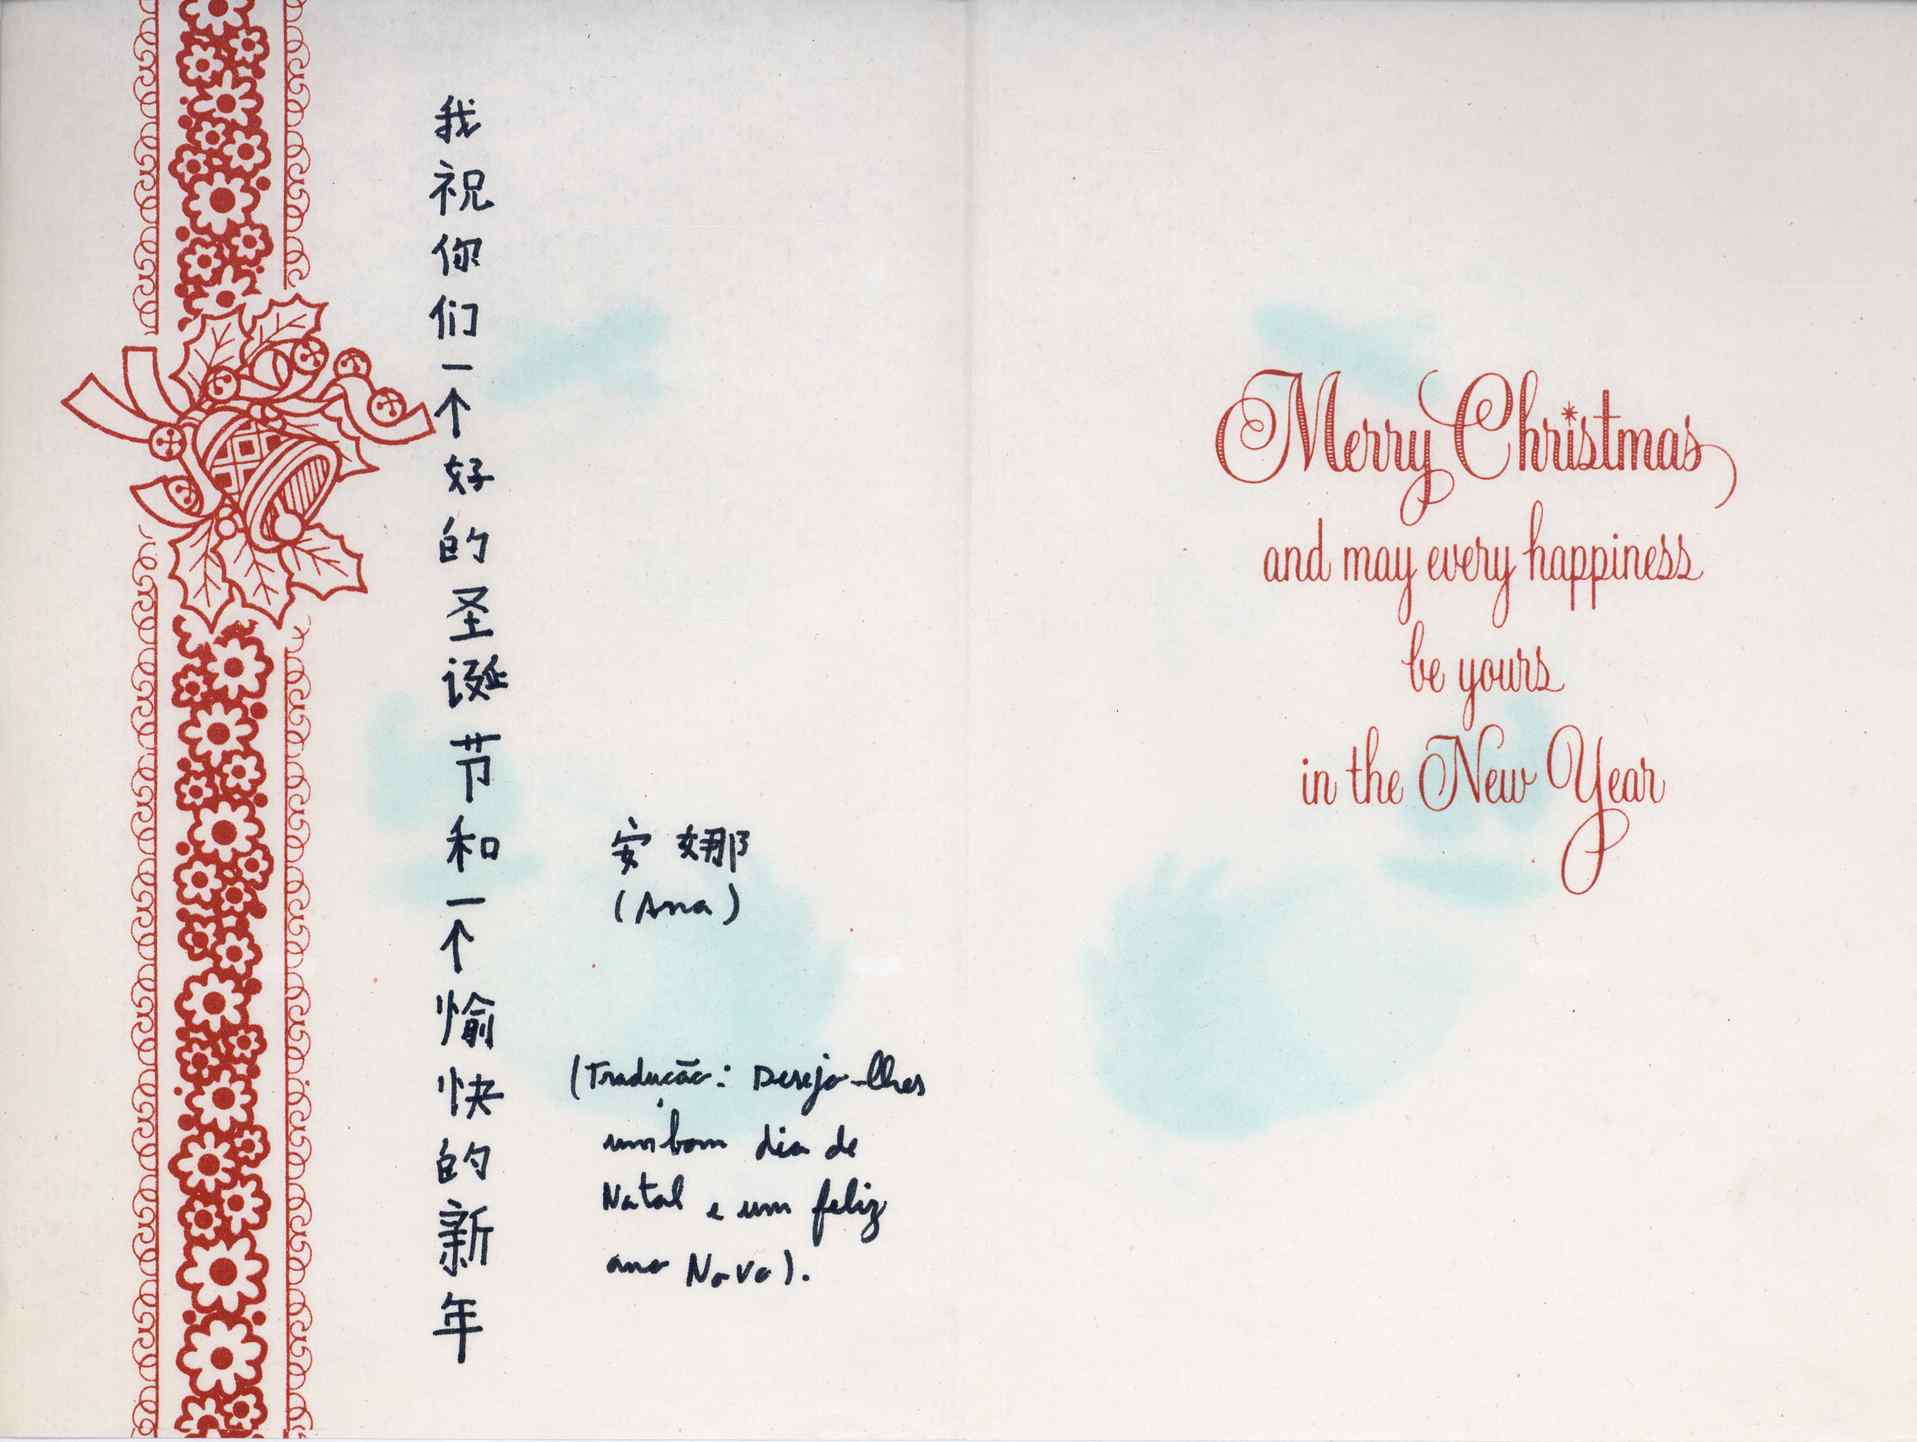 我祝你们一个好的圣诞节和一个愉快的新年
安娜
(Ana)
(Tradução: Desejo-lhes
um bom dia de
Natal e um feliz
ano Novo).
Merry Christmas
and may every happiness
be yours
in the New Year